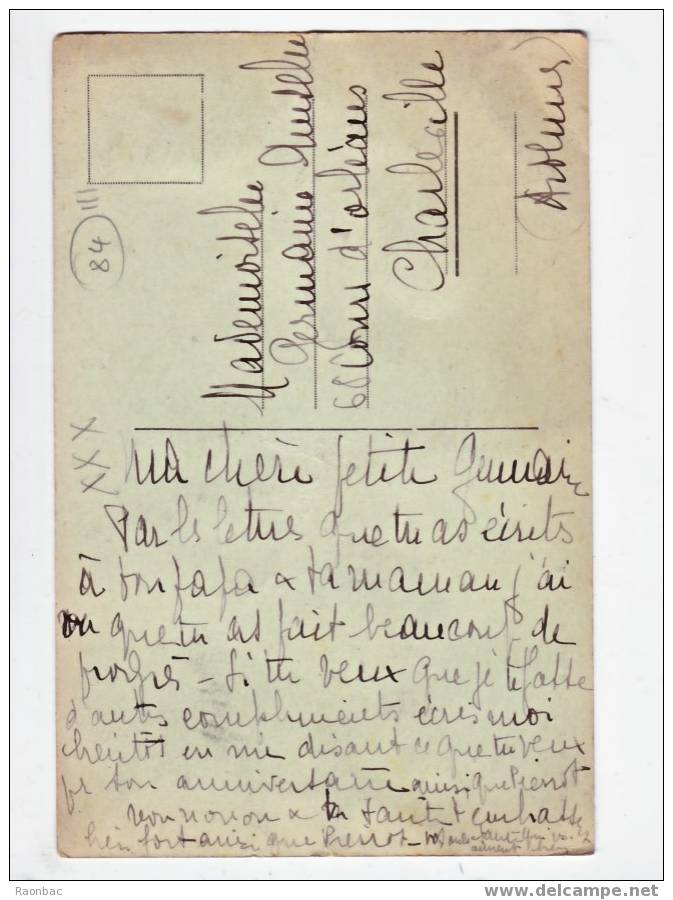 84
Mademoiselle
Germaine
68 Cours d'orléans
Charleville
(Ardennes)
XXX
Ma chère petite Germaine
Par les lettres que tu as écrites
à ton papa & ta maman j'ai
vu que tu as fait beaucoup de
progrès – Si tu veux que je te fasse
d'autres compliments écris moi
bientôt en me disant ce que tu veux
pr ton anniversaire ainsi que Pierrot
& ta tante t'embrasse
bien fort ainsi que Pierrot –
Raonbac
www.delcampe.net